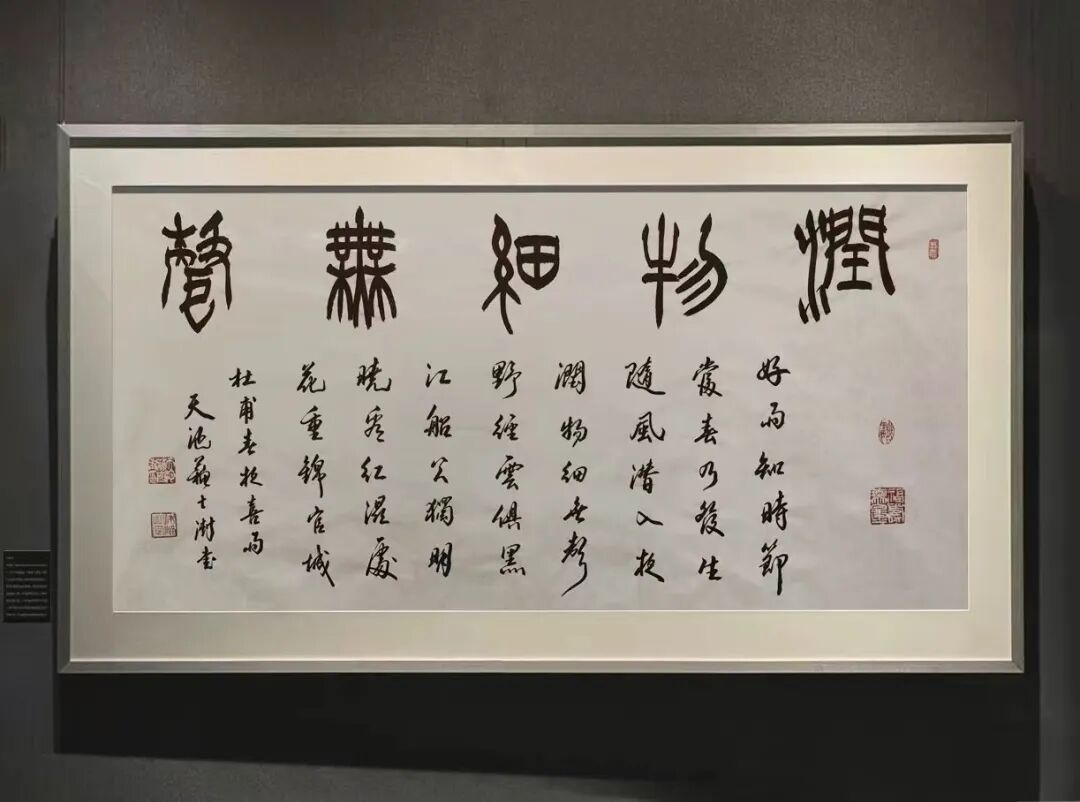 潤物細無聲
好雨知時節
當春乃發生
隨風潛入夜
潤物細無聲
野徑雲俱黑
江船火獨明
曉看紅濕處
花重錦官城
杜甫春夜喜雨
天池蘇士澍書